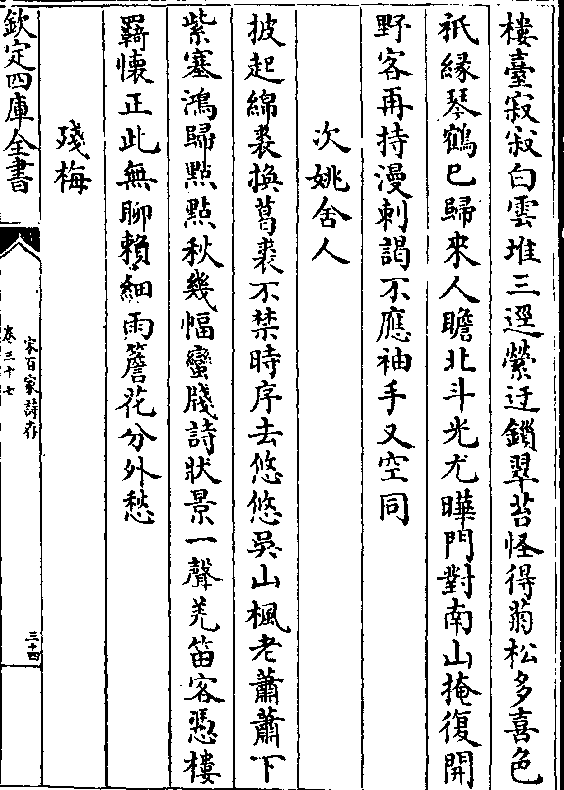 樓臺寂寂白雲堆三逕縈迂鎖翠苔怪得蒭松多喜色
祇縁琴鶴已歸來人瞻北斗光尤曄門對南山掩復開
野客再持漫刺謁不應袖手又空同
次姚舍人
披起綿裘換葛裘不禁時序去悠悠吳山楓老蕭蕭下
紫塞鴻歸點點秋幾幅蠻牋詩狀景一聲羌笛客憑樓
羇懷正此無聊賴細雨簷花分外愁
殘梅
欽定四庫全書
宋百家詩存
卷三十七
三十四